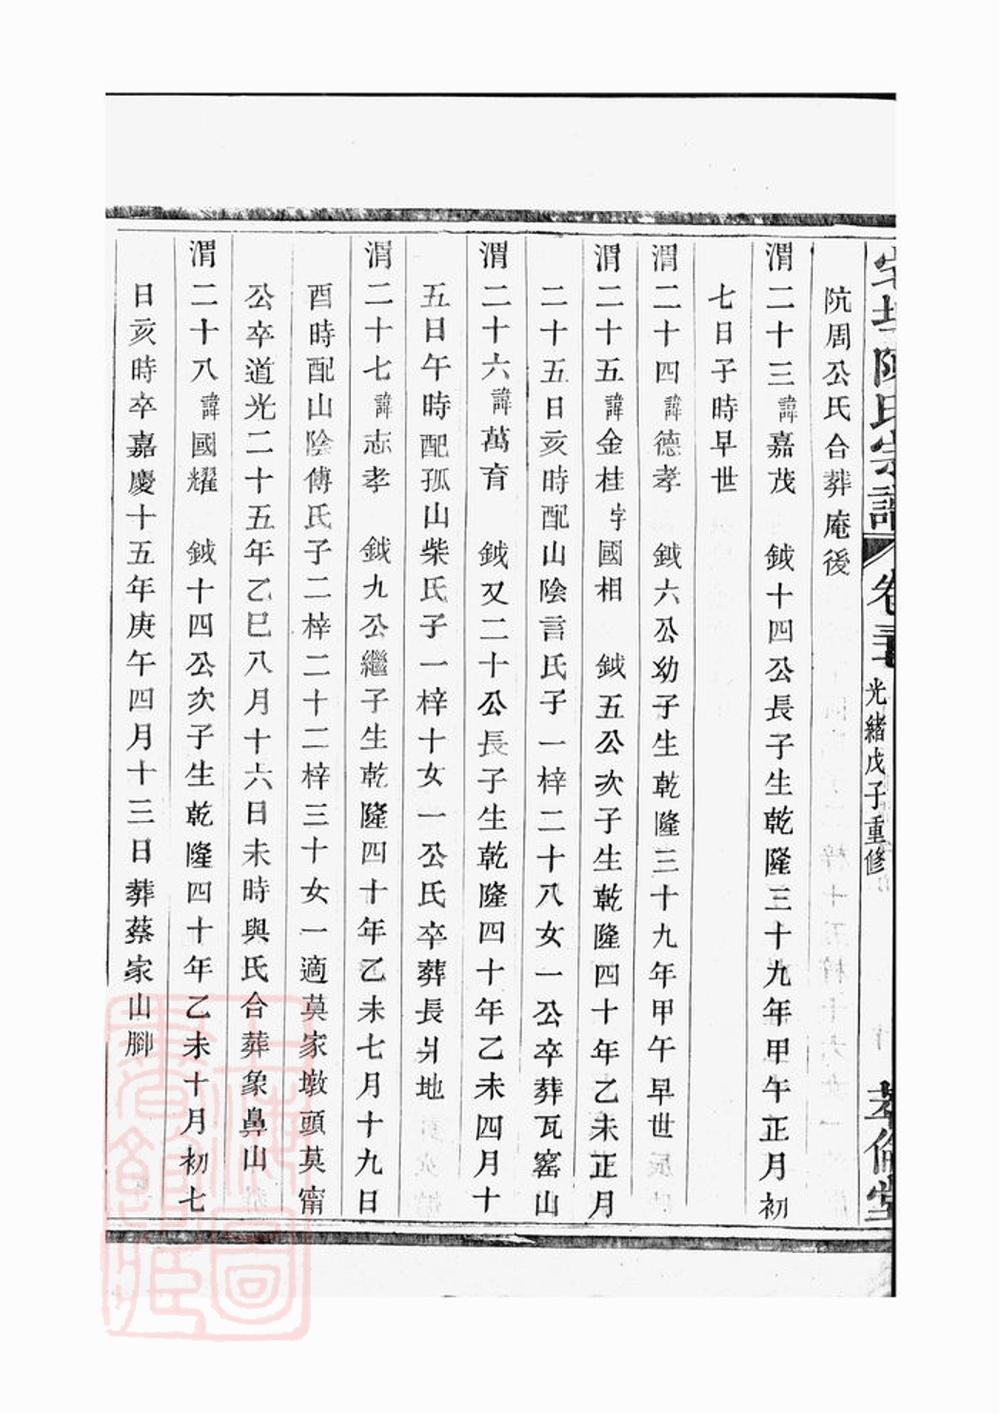 宅埠陳氏宗譜 卷三 光緒戊子重修 萃倫堂
阮周公氏合葬庵後
渭二十三諱嘉茂 鉞十四公長子生乾隆三十九年甲午正月初
七日子時早世
渭二十四諱德孝 鉞六公幼子生乾隆三十九年甲午早世
渭二十五諱金桂字國相 鉞五公次子生乾隆四十年乙未正月
二十五日亥時配山陰言氏子一梓二十八女一公卒葬瓦窰山
渭二十六諱萬育 鉞又二十公長子生乾隆四十年乙未四月十
五日午時配孤山柴氏子一梓十女一公氏卒葬長爿地
渭二十七諱志孝 鉞九公繼子生乾隆四十年乙未七月十九日
酉時配山陰傅氏子二梓二十二梓三十女一適莫家墩頭莫甯
公卒道光二十五年乙巳八月十六日未時與氏合葬象鼻山
渭二十八諱國耀 鉞十四公次子生乾隆四十年乙未十月初七
日亥時卒嘉慶十五年庚午四月十三日葬蔡家山腳
上海圖書館藏